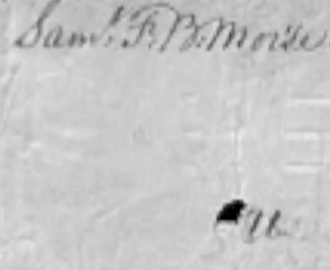 Saml. F. B. Morse